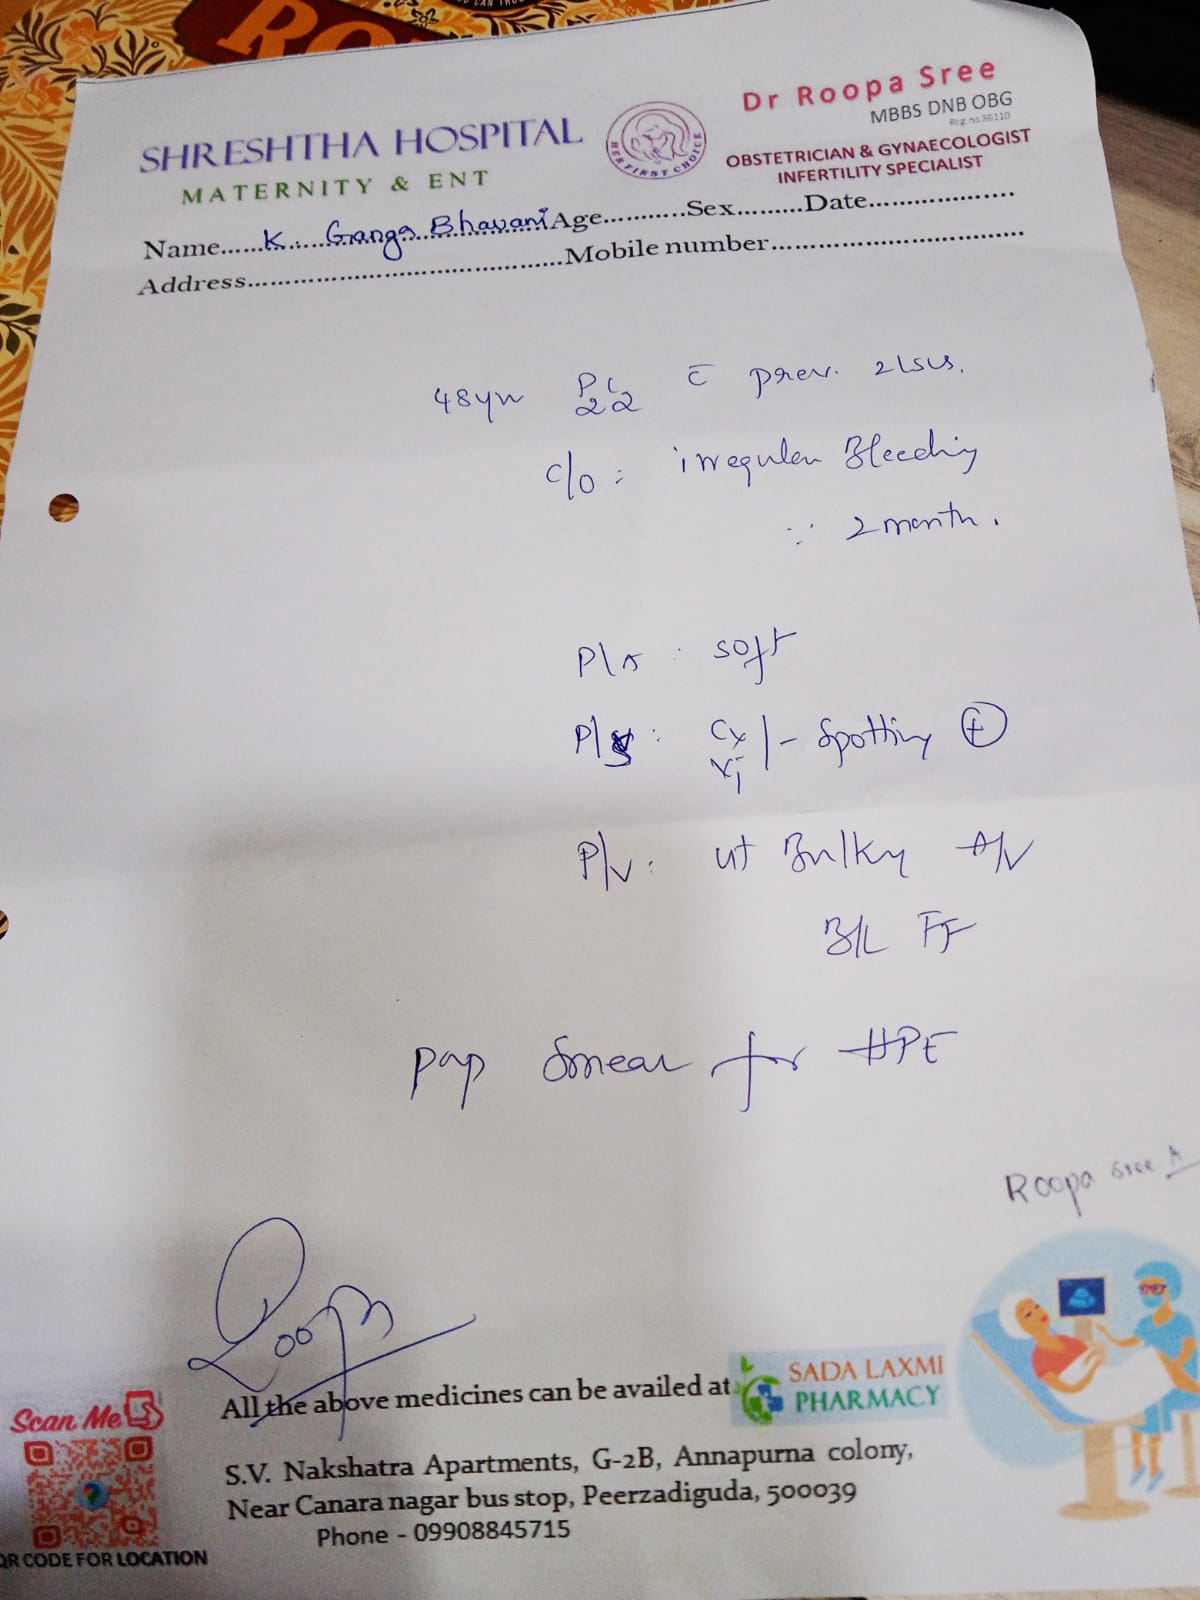 SHRESHTHA HOSPITAL
MATERNITY & ENT
HER FIRST CHOICE
Dr Roopa Sree
MBBS DNB OBG
Reg.no.86110
OBSTETRICIAN & GYNAECOLOGIST
INFERTILITY SPECIALIST
Name......K. Ganga Bhavani Age...........Sex.........Date...................
Address.......................................Mobile number................................
48yr P2L2 c̄ prev. 2LSCS.
c/o : irregular Bleeding
∵ 2 month.
P/A : soft
P/S : Cx/ - Spotting ⊕
P/V : ut Bulky A/V
B/L FF
Pap Smear for HPE
Roopa Sree A
Roopa
All the above medicines can be availed at
SADA LAXMI
PHARMACY
Scan Me
S.V. Nakshatra Apartments, G-2B, Annapurna colony,
Near Canara nagar bus stop, Peerzadiguda, 500039
Phone - 09908845715
QR CODE FOR LOCATION